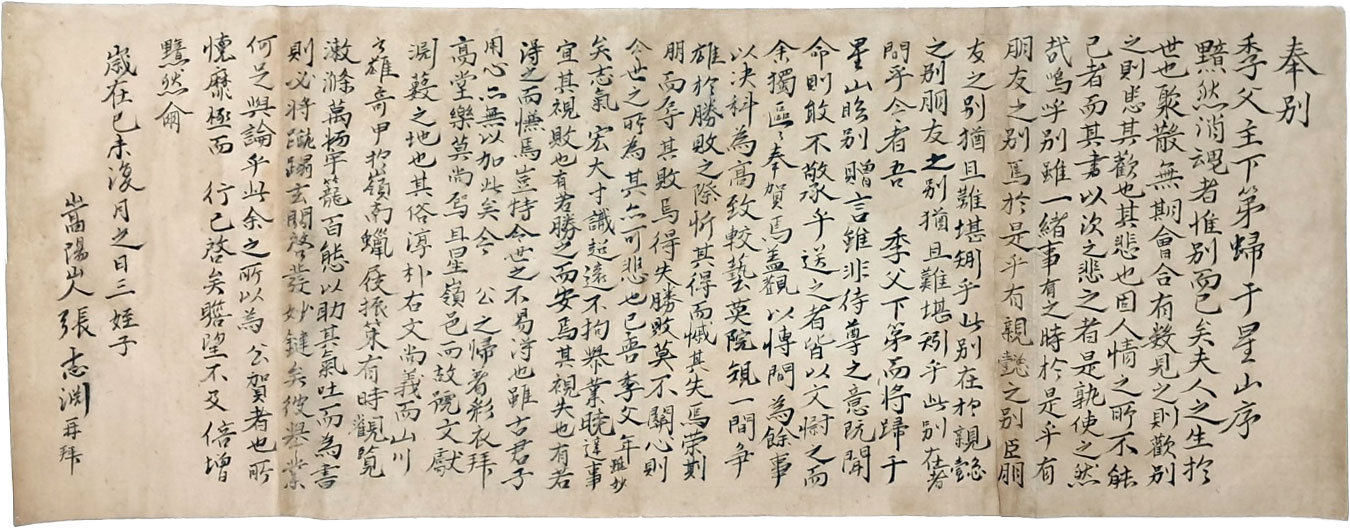 奉別
季父主下第歸于星山序
黯然消魂者惟別而已矣夫人之生於
世也聚散無期會合有數見之則歡別
之則悲其歡也其悲也固人情之所不能
已者而其書以次之悲之者是孰使之然
哉嗚呼別雖一緒事有之時於是乎有
朋友之別焉於是乎有親懿之別臣朋
友之別猶且難堪矧乎此別在於親懿
之別朋友之別猶且難堪矧乎此別在著
間乎今者吾 季父下第而將歸于
星山臨別贈言雖非待尊之意旣聞
命則敢不敬承乎送之者皆以文慰之而
余獨區區奉賀焉盖觀以博間為餘事
以决科為高致較藝英院覢一間爭
雄於勝敗之際忻其得而慽其失焉榮則
朋而辱其敗焉得失勝敗莫不關心則
今世之所為其亦可悲也已吾季父年雖妙
矣志氣宏大才識超遠不拘擧業曉達事
宜其視敗也有若勝之而安焉其視失也有若
得之而憮焉豈特今世之不易得也雖古君子
用心亦無以加此矣今 公之歸着彩衣拜
高堂樂莫尚焉且星嶺邑而故號文獻
淵藪之地也其俗淳朴右文尚義而山川
之雄奇甲於嶺南蠟屐振策有時觀覽
漱滌萬物牢籠百態以助其氣吐而為書
則必將蹴蹋玄關啓發妙鍵矣彼擧業
何足與論乎此余之所以為 公賀者也所
懷靡極而 行已啓矣瞻望不及倍增
黯然爾
歲在己未復月之日三姪子
嵩陽山人張志淵再拜